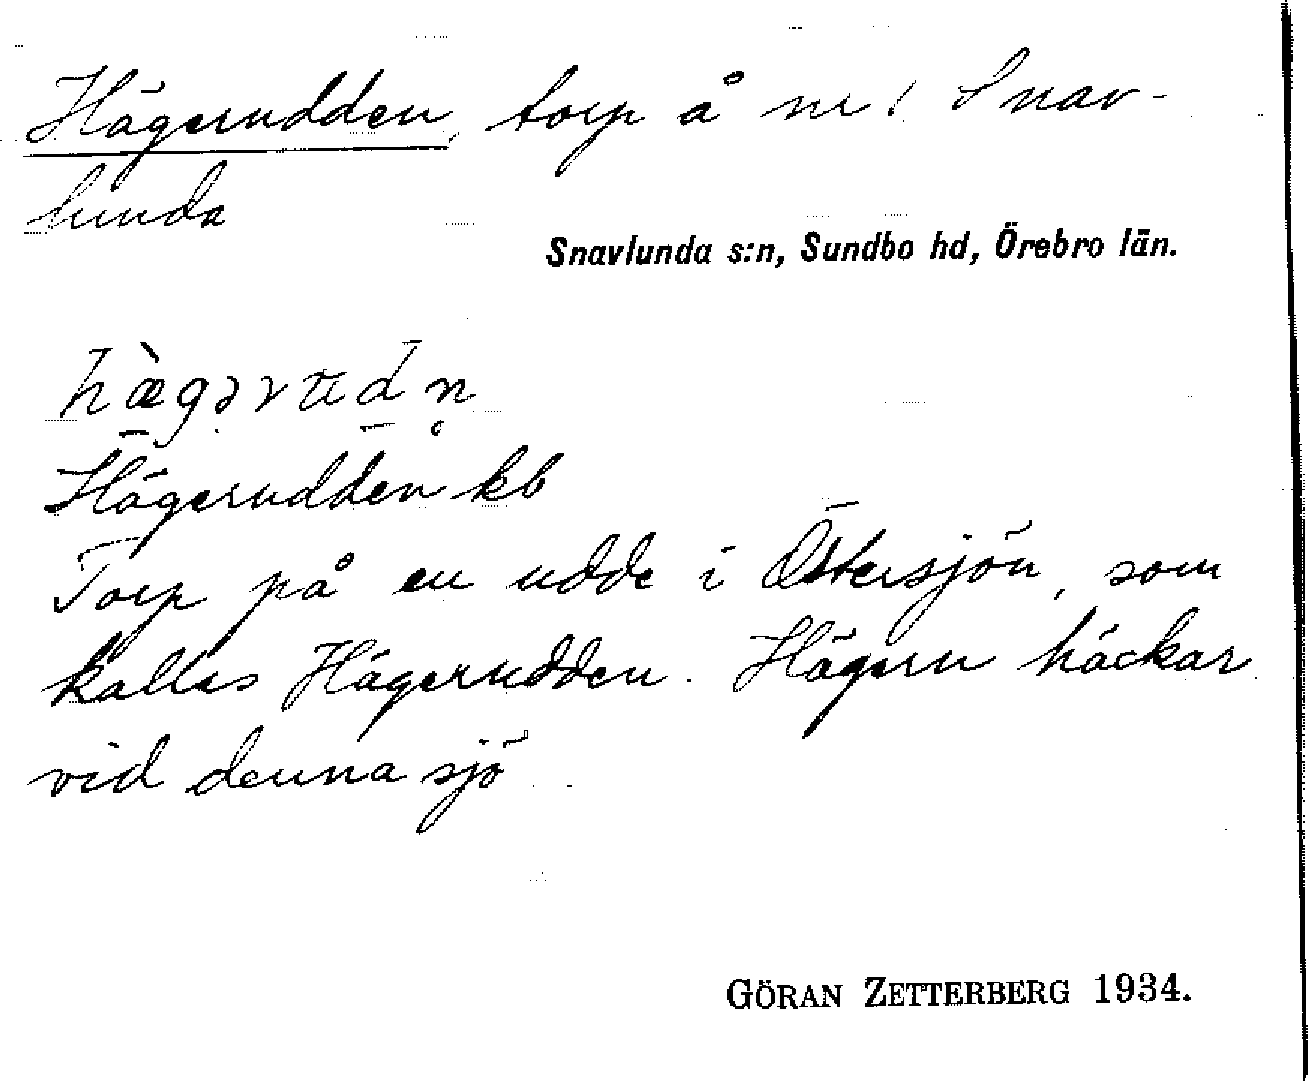 Hägerudden, torp å nr 1 Snav-
lunda
Snavlunda s:n, Sundbo hd, Örebro län.
hæ̀gərudn̥
Hägerudden kb
Torp på en udde i Östersjön, som
kallas Hägerudden. Hägern häckar
vid denna sjö.
GÖRAN ZETTERBERG 1934.